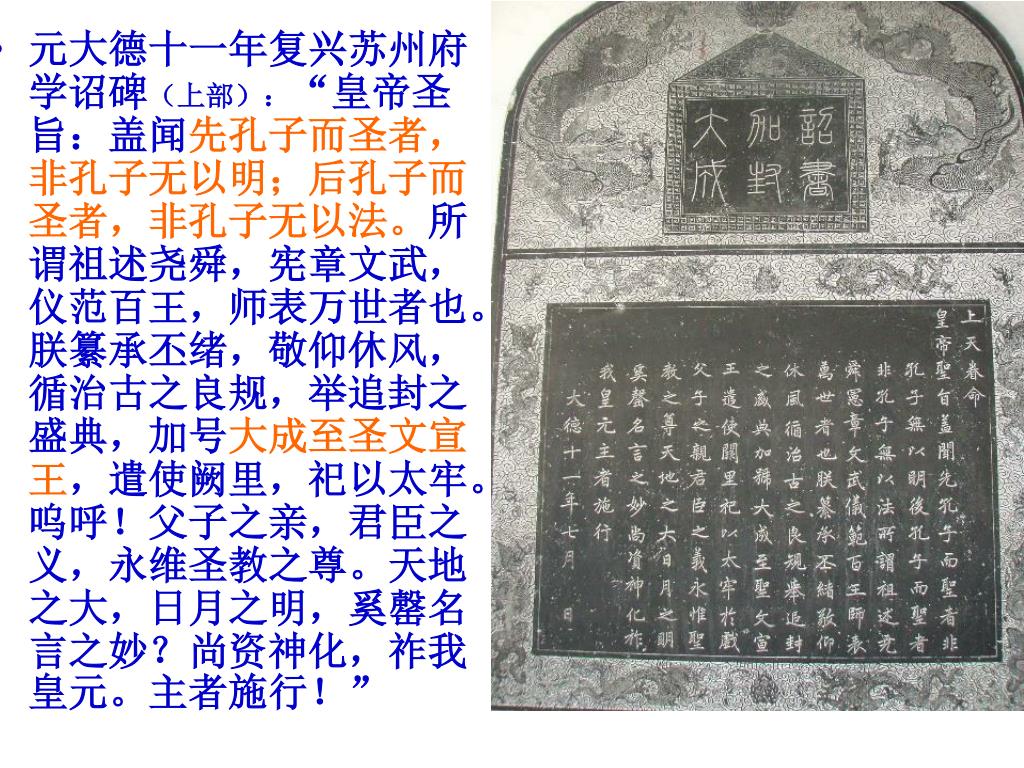 • 元大德十一年复兴苏州府
学诏碑（上部）：“皇帝圣
旨：盖闻先孔子而圣者，
非孔子无以明；后孔子而
圣者，非孔子无以法。所
谓祖述尧舜，宪章文武，
仪范百王，师表万世者也。
朕纂承丕绪，敬仰休风，
循治古之良规，举追封之
盛典，加号大成至圣文宣
王，遣使阙里，祀以太牢。
呜呼！父子之亲，君臣之
义，永维圣教之尊。天地
之大，日月之明，奚罄名
言之妙？尚资神化，祚我
皇元。主者施行！”
詔書
加封
大成
上天眷命
皇帝聖旨蓋聞先孔子而聖者非
孔子無以明後孔子而聖者
非孔子無以法所謂祖述堯
舜憲章文武儀範百王師表
萬世者也朕纂承丕緒敬仰
休風循治古之良規舉追封
之盛典加稱大成至聖文宣
王遣使闕里祀以太牢於戲
父子之親君臣之義永惟聖
教之尊天地之大日月之明
奚罄名言之妙尚資神化祚
我皇元主者施行
大德十一年七月 日